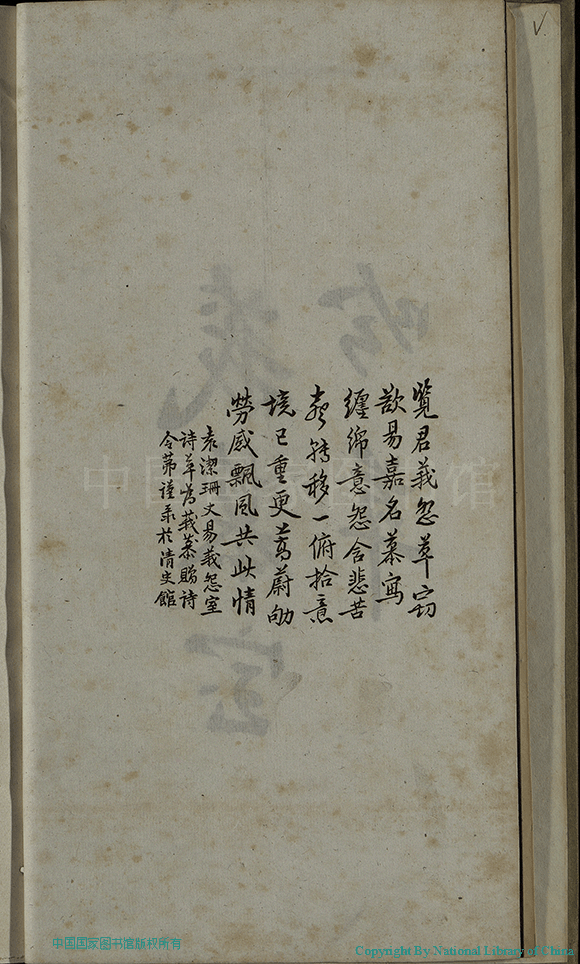 覽君莪怨草窃
歆易嘉名慕寫
纏綿意怨含悲苦
聲轉移一俯拾意
境已重更蒿蔚劬
勞感飄風共此情
袁潔珊丈易莪怨室
詩草為莪慕賜詩
令茀謹录於清史館
中国国家图书馆
中国国家图书馆版权所有
Copyright By National Library of China
V